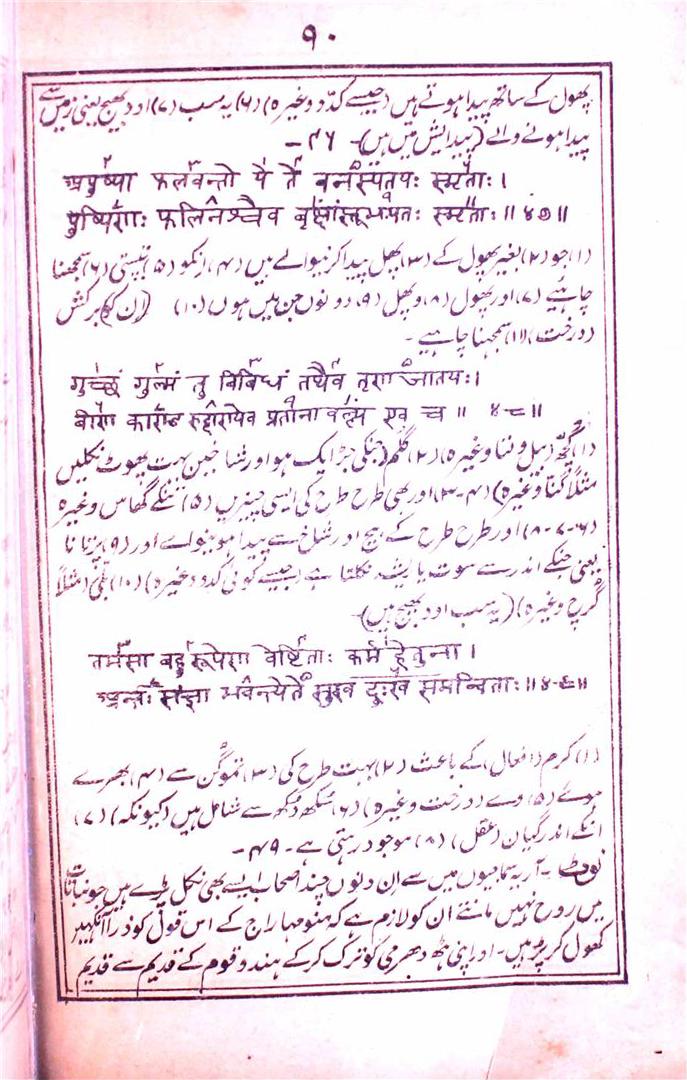 १०
پھول کے ساتھ پیدا ہوتے ہیں (جیسے کدّو وغیرہ) (۶) یہ سب (۷) اودبھیج یعنی زمین سے
پیدا ہونے والے (پیدایش میں ہیں)۔ ۴۶۔
अपुष्पा फलवन्तो ये ते बनस्पतयः स्मृताः।
पुष्पिणः फलिनश्चैव बृक्षांस्तूभयतः स्मृताः॥४७॥
(۱) جو (۲) بغیر پھول کے (۳) پھل پیدا کرنیوالے ہیں (۴) انکو (۵) بنسپتی (۶) سمجھنا
چاہیے (۷) اور پھول (۸) و پھل (۹) دونوں جن میں ہوں (۱۰) (ان کو) برکش
(درخت) (۱۱) سمجھنا چاہیے۔
गुच्छं गुल्मं तु विबिधं तथैव तृण जातयः।
बीण काराड रुहारायेव प्रताना वल्य एव च॥ ४८॥
(۱) گچھ (بیل و تنا وغیرہ) (۲) گلم (جنکی جڑ ایک ہو اور شاخین بہت پھوٹ نکلیں
مثلاً گنّا وغیرہ) (۳-۴) اور بھی طرح طرح کی ایسی چیزیں (۵) تنکے گھاس وغیرہ
(۶-۷-۸) اور طرح طرح کے بیج اور شاخ سے پیدا ہونیوالے اور (۹) پرتانا
یعنی جنکے اندر سے سوت یا ریشہ نکلتا ہے (جیسے کوئی کدو وغیرہ) (۱۰) بلّی (مثلاً
گرچ وغیرہ) (یہ سب اودبھیج ہیں)۔
तमसा बहुरूपेण वेष्टिताः कर्म हेतुना।
अन्तः संज्ञा भवन्त्येते सुख दुःख समन्विताः॥४९॥
(۱) کرم (افعال) کے باعث (۲) بہت طرح کی (۳) تموگن سے (۴) بھرے
ہوئے (۵) وے (درخت وغیرہ) (۶) سکھ دکھ سے شامل ہیں (کیونکہ) (۷)
انکے اندر گیان (عقل) (۸) موجود رہتی ہے۔ ۴۹۔
نوٹ۔ آریہ سماجیوں میں سے ان دنوں چند اصحاب ایسے بھی نکل پڑے ہیں جو نباتات
میں روح نہیں مانتے ان کو لازم ہے کہ منو مہاراج کے اس قول کو ذرا آنکھیں
کھول کر پڑھیں۔ اور اپنی ہٹ دھرمی کو ترک کر کے ہندو قوم کے قدیم سے قدیم